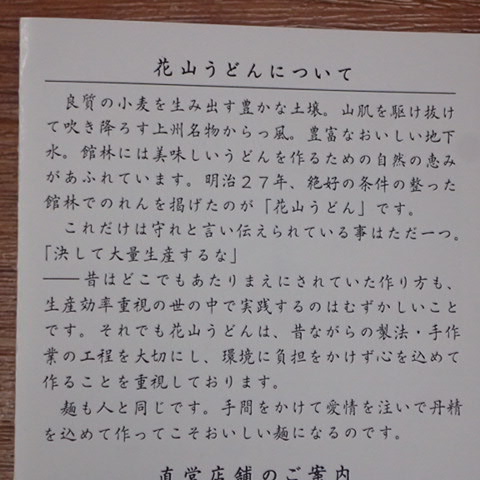 花山うどんについて
良質の小麦を生み出す豊かな土壌。山肌を駆け抜け
て吹き降ろす上州名物からっ風。豊富なおいしい地下
水。館林には美味しいうどんを作るための自然の恵み
があふれています。明治２７年、絶好の条件の整った
館林でのれんを掲げたのが「花山うどん」です。
これだけは守れと言い伝えられている事はただ一つ。
「決して大量生産するな」
――昔はどこでもあたりまえにされていた作り方も、
生産効率重視の世の中で実践するのはむずかしいこと
です。それでも花山うどんは、昔ながらの製法・手作
業の工程を大切にし、環境に負担をかけず心を込めて
作ることを重視しております。
麺も人と同じです。手間をかけて愛情を注いで丹精
を込めて作ってこそおいしい麺になるのです。
直営店舗のご案内